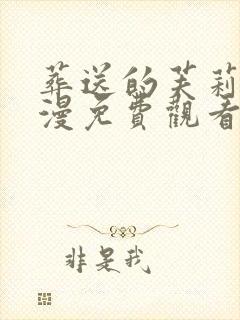 葬送的芙莉
漫免費觀看
非是我